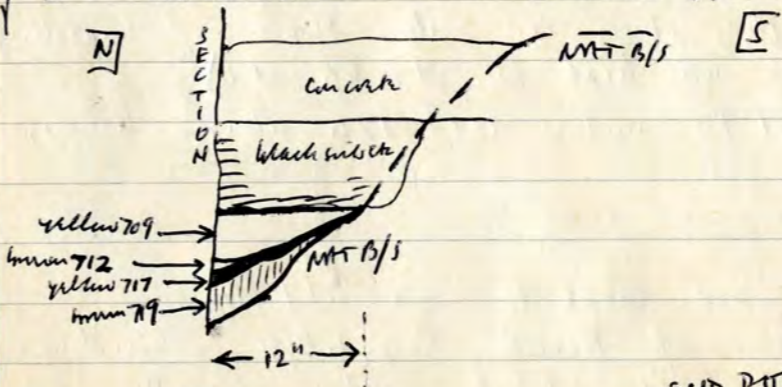 N
S
SECTION
NAT B/S
concrete
black
yellow 709
brown 712
yellow 717
brown 719
NAT B/S
12"